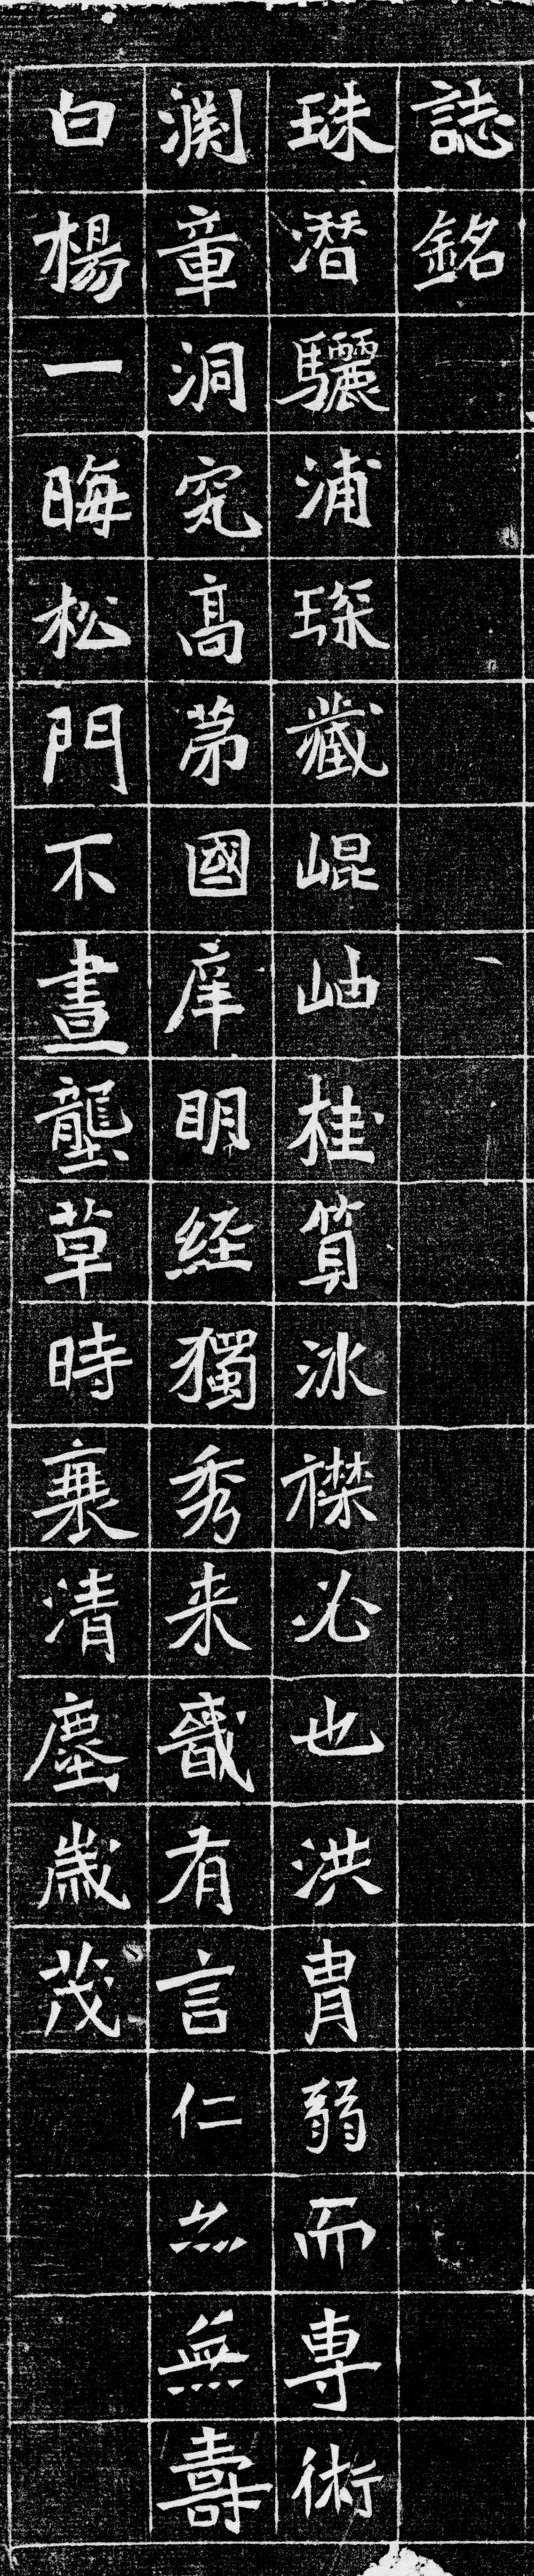 誌銘
珠潛驪浦琛藏崐岫桂質冰襟必也洪胄弱而專術
渕章洞究高苐國庠明經獨秀来哉有言仁亦無壽
白楊一晦松門不晝壟草時衰清塵歲茂